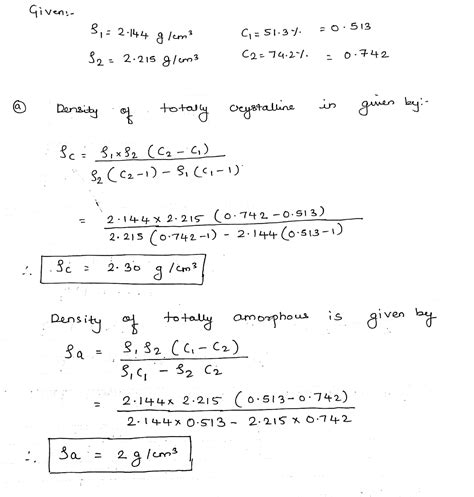 Given:-
ρ₁ = 2.144 g/cm³ C₁ = 51.3% = 0.513
ρ₂ = 2.215 g/cm³ C₂ = 74.2% = 0.742
ⓐ Density of totally crystalline is given by:-
ρc = ρ₁×ρ₂ (C₂ - C₁)
ρ₂ (C₂-1) - ρ₁ (C₁-1)
= 2.144 × 2.215 (0.742 - 0.513)
2.215 (0.742-1) - 2.144 (0.513-1)
∴ ρc = 2.30 g/cm³
Density of totally amorphous is given by
ρa = ρ₁ ρ₂ (C₁ - C₂)
ρ₁C₁ - ρ₂ C₂
= 2.144 × 2.215 (0.513 - 0.742)
2.144 × 0.513 - 2.215 × 0.742
∴ ρa = 2 g/cm³